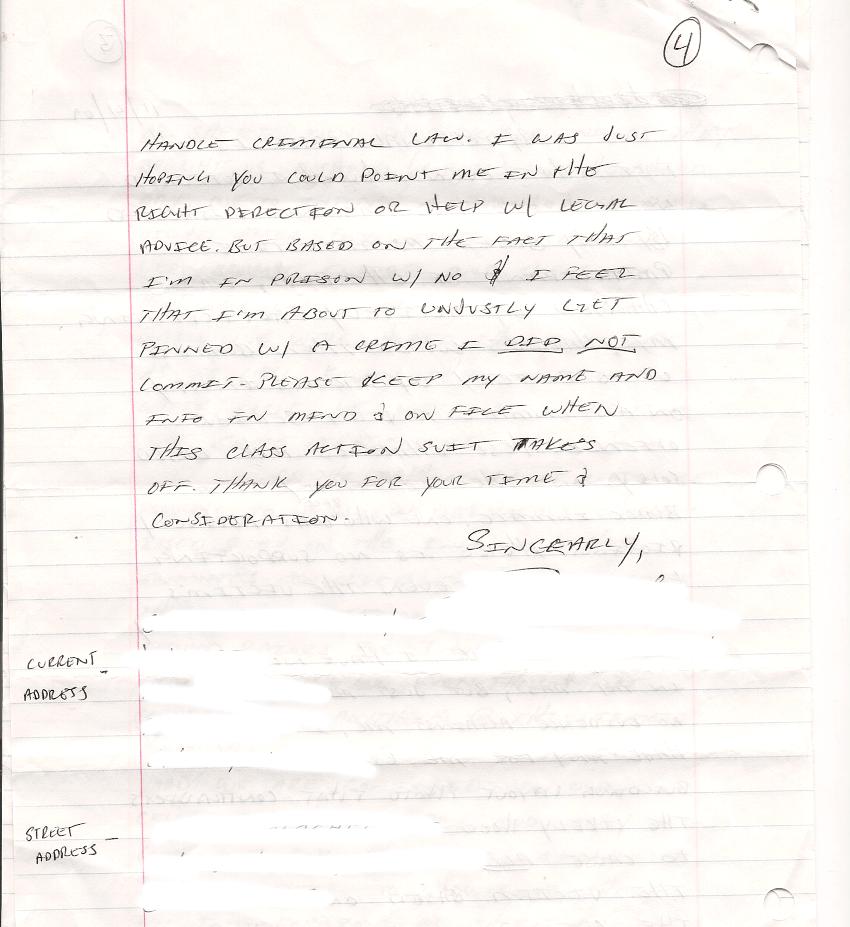 4
HANDLE CRIMENAL LAW. I WAS JUST
HOPING YOU COULD POINT ME IN THE
RIGHT DIRECTION OR HELP W/ LEGAL
ADVICE. BUT BASED ON THE FACT THAT
I'M IN PRISON W/ NO $ I FEEL
THAT I'M ABOUT TO UNJUSTLY GET
PINNED W/ A CRIME I DID NOT
COMMIT. PLEASE KEEP MY NAME AND
INFO IN MIND & ON FILE WHEN
THIS CLASS ACTION SUIT TAKE'S
OFF. THANK YOU FOR YOUR TIME &
CONSIDERATION.
SINCEARLY,
CURRENT
ADDRESS
STREET
ADDRESS